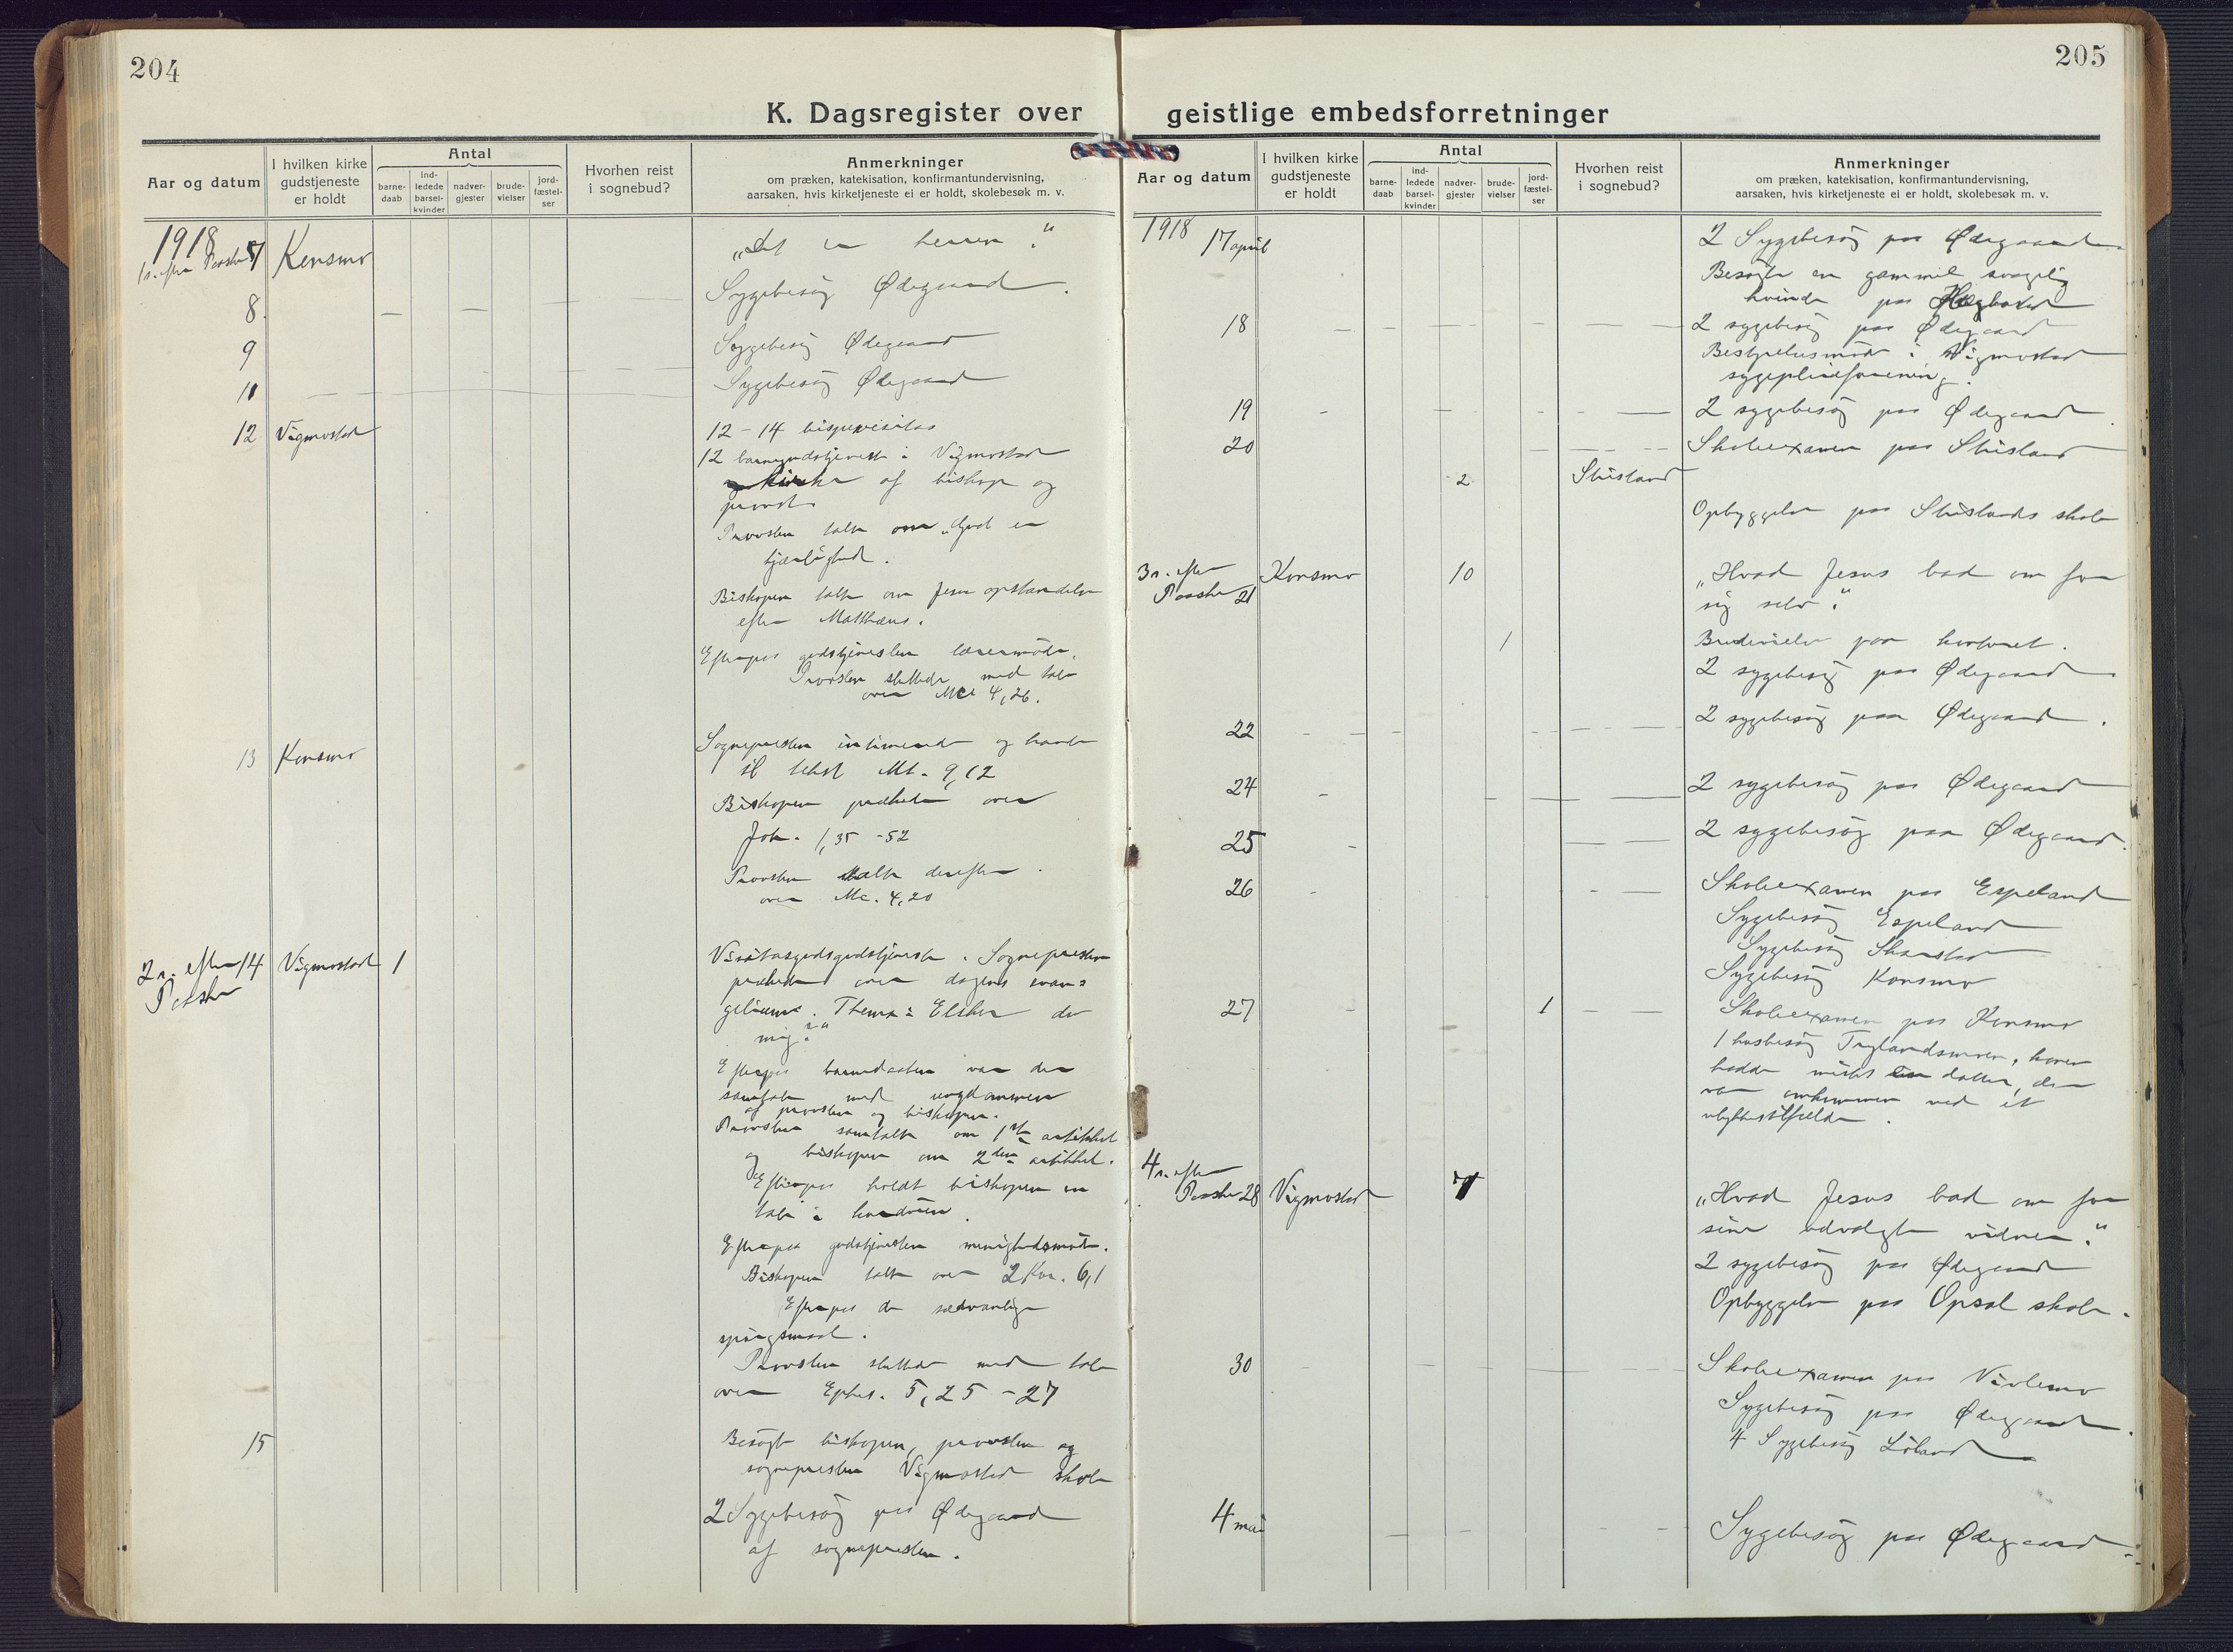 204
K. Dagsregister over
Aar og datum
I hvilken kirke
gudstjeneste
er holdt
Antal
barne-
daab
ind-
ledede
barsel-
kvinder
nadver-
gjester
brude-
vielser
jord-
fæstel-
ser
Hvorhen reist
i sognebud?
Anmerkninger
om præken, katekisation, konfirmantundervisning,
aarsaken, hvis kirketjeneste ei er holdt, skolebesøk m. v.
1918
1 s. efter Paaske 7 Konsmo „Det er herren."
8. Sygebesög Ødegaard.
9 Sygebesög Ødegaard
11 Sygebesög Ødegaard
12 Vigmostad 12-14 bispevisitas
12 barnegudstjeneste i Vigmostad
kirke af biskop og
provst.
Provsten talte om „Gud er
kjærlighed.
Biskopen talte om Jesu opstandelse
efter Matthæus.
Efterpaa gudstjenesten læreremöde.
Provsten sluttede med tale
over Mc 4,26.
13 Konsmo Sognepresten intimerede og havde
til tekst Mt. 9,12
Biskopen prækede over
Joh. 1,35-52
Provsten talte derefter
over Mc. 4,20
2 s. efter 14 Vigmostad 1 Visitasgudsgudstjeneste. Sognepresten
Paaske prækede over dagens evan=
gelium. Thema: Elsker du
mig?"
Efterpaa barnedaaben var der
samtale med ungdommen
af provsten og biskopen.
Provsten samtalte om 1ste artikkel
og biskopen om 2den artikkel.
Efterpaa holdt biskopen en
tale i kordören.
Efterpaa gudstjenesten menighedsmöte.
Biskopen talte over 2 Kor. 6,1
Efterpaa de sedvanlige
spörgsmaal.
Provsten sluttede med tale
over Ephes. 5,25-27
15 Besögte biskopen, provsten og
sognepresten Vigmostad skole
2 Sygebesög paa Ødegaard
af sognepresten.
205
geistlige embedsforretninger
Aar og datum
I hvilken kirke
gudstjeneste
er holdt
Antal
barne-
daab
ind-
ledede
barsel-
kvinder
nadver-
gjester
brude-
vielser
jord-
fæstel-
ser
Hvorhen reist
i sognebud?
Anmerkninger
om præken, katekisation, konfirmantundervisning,
aarsaken, hvis kirketjeneste ei er holdt, skolebesøk m. v.
1918 17 april 2 Sygebesög paa Ødegaard.
Besögte en gammel svagelig
kvinde paa
18 2 sygebesög paa Ødegaard
Bestyrelsesmöde i Vigmostad
sygepleieforening.
19 2 sygebesög paa Ødegaard
20 Skoleexamen paa Stuisland
2 Stuisland
Opbyggelse paa Stuislands skole
3 s. efter Konsmo 10 „Hvad Jesus bad om for
Paaske 21 sig selv."
1 Brudevielse paa kontoret.
2 sygebesög paa Ødegaard
22 2 sygebesög paa Ødegaard.
24 2 sygebesög paa Ødegaard
25 2 sygebesög paa Ødegaard.
26 Skoleexamen paa Espeland
Sygebesög Espeland
Sygebesög
Sygebesög Konsmo
27 1 Skoleexamen paa Konsmo
1 husbesög
hadde mistet en datter, der
var omkommen ved et
ulykkestilfælde.
4 s. efter
Paaske 28 Vigmostad 7 „Hvad Jesus bad om for
sine udvalgte vidner."
2 sygebesög paa Ødegaard
Opbyggelse paa Opsal skole.
30 Skoleexamen paa Violemo
Sygebesög paa Ødegaard.
4 Sygebesög Löland
4 mai Sygebesög paa Ødegaard